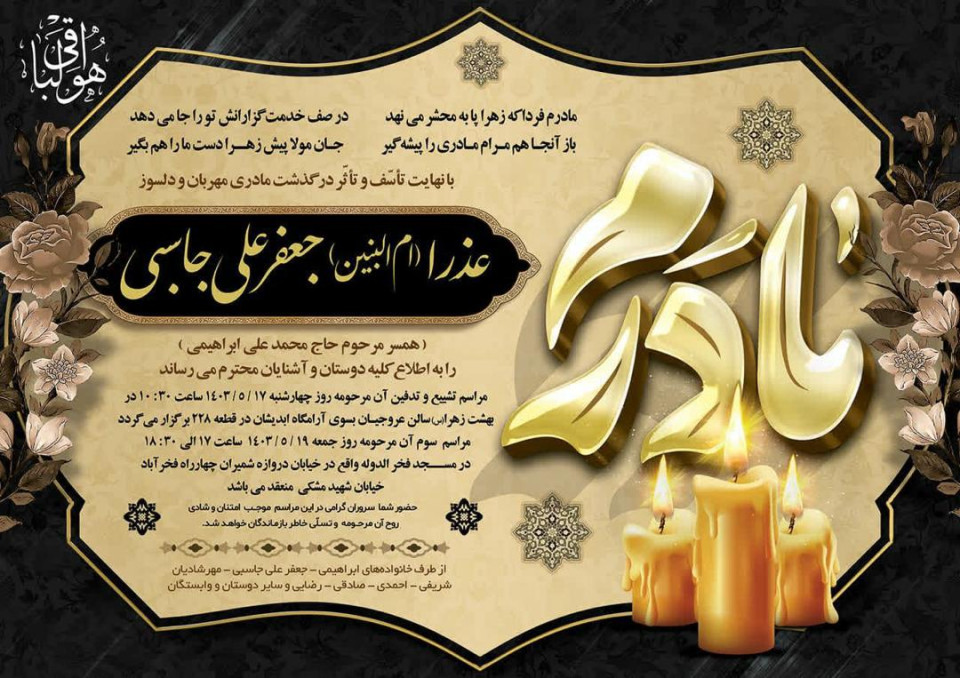 هوالباقی
مادرم فرداکه زهرا پا به محشر می نهد در صف خدمت گزارانش تو را جا می دهد
باز آنجا هم مرام مادری را پیشه گیر جان مولا پیش زهرا دست ما را هم بگیر
با نهایت تأسّف و تأثّر درگذشت مادری مهربان و دلسوز
مادرم
عذرا (ام البنین) جعفر علی جاسبی
(همسر مرحوم حاج محمد علی ابراهیمی)
را به اطلاع کلیه دوستان و آشنایان محترم می رساند
مراسم تشییع و تدفین آن مرحومه روز چهارشنبه ۱۷ / ۵ / ۱۴۰۳ ساعت ۱۰:۳۰ در
بهشت زهرا(س) سالن عروجیان بسوی آرامگاه ابدیشان در قطعه ۲۲۸ برگزار می گردد
مراسم سوم آن مرحومه روز جمعه ۱۹ / ۵ / ۱۴۰۳ ساعت ۱۷ الی ۱۸:۳۰
در مسجد فخر الدوله واقع در خیابان دروازه شمیران چهارراه فخرآباد
خیابان شهید مشکی منعقد می باشد
حضور شما سروران گرامی در این مراسم موجب امتنان و شادی
روح آن مرحومه و تسلّی خاطر بازماندگان خواهد شد.
از طرف خانواده‌های ابراهیمی - جعفر علی جاسبی - مهرشادیان
شریفی - احمدی - صادقی - رضایی و سایر دوستان و وابستگان